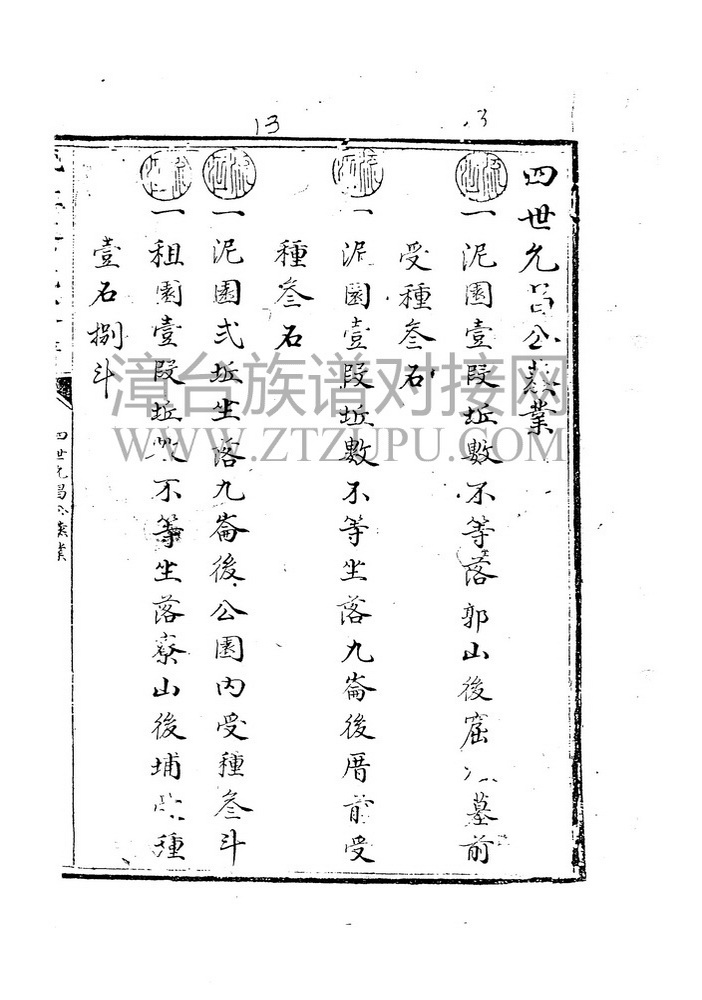 13
3
四世允昌公蒸業
一泥園壹段坵數不等落郭山後窟墓前
受種叁石
一泥園壹段坵數不等坐落九崙後厝前受
種叁石
一泥園弍坵坐落九崙後公園內受種叁斗
一租園壹段坵數不等坐落寮山後埔種
壹石捌斗
四世允昌公蒸業
漳台族谱对接网
WWW.ZTZUPU.COM